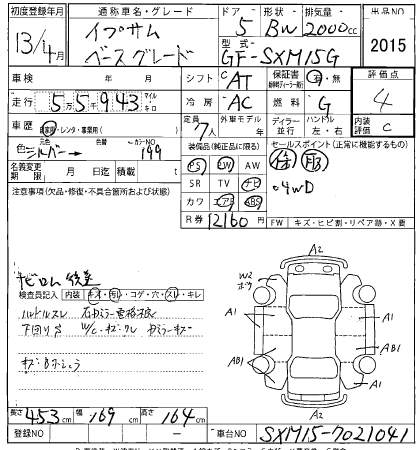 初度登録年月 通称車名・グレード ドア 形状 排気量 出品NO
13/4月 イプサム ベースグレード 5 BW 2000cc 2015
型式 GF-SXM15G
車検 年 月 シフト CAT 保証書 有・無 評価点
走行 5 5千 943 マイル キロ 冷房 AC 燃料 G 4
車歴 自家用・レンタ・事業用( ) 定員 7人 外車モデル年式 ディーラー 並行 ハンドル 左・右 内装評価 C
色 元色 シルバー→ 色替 カラーNO 199 装備品(純正品に限る) セールスポイント(正常に機能するもの)
名義変更期限 月 日迄 積載 t PS PW AW
注意事項(欠品・修復・不具合箇所および状態) SR TV ナビ ・4WD
カワ エアB ABS
R券 12160円 FW キズ・ヒビ割・リペア跡・X要
ナビロム 後差
検査員記入 内装 キズ・汚レ・コゲ・穴・スレ・キレ
ハンドルスレ 右ミラー電格
下回りサ W/C・キズ・ワレ
A2
W2
A1 A1
AB1 AB1
A1
A2
長さ 453cm 幅 169cm 高さ 164cm
登録NO — 車台NO SXM15-7021041